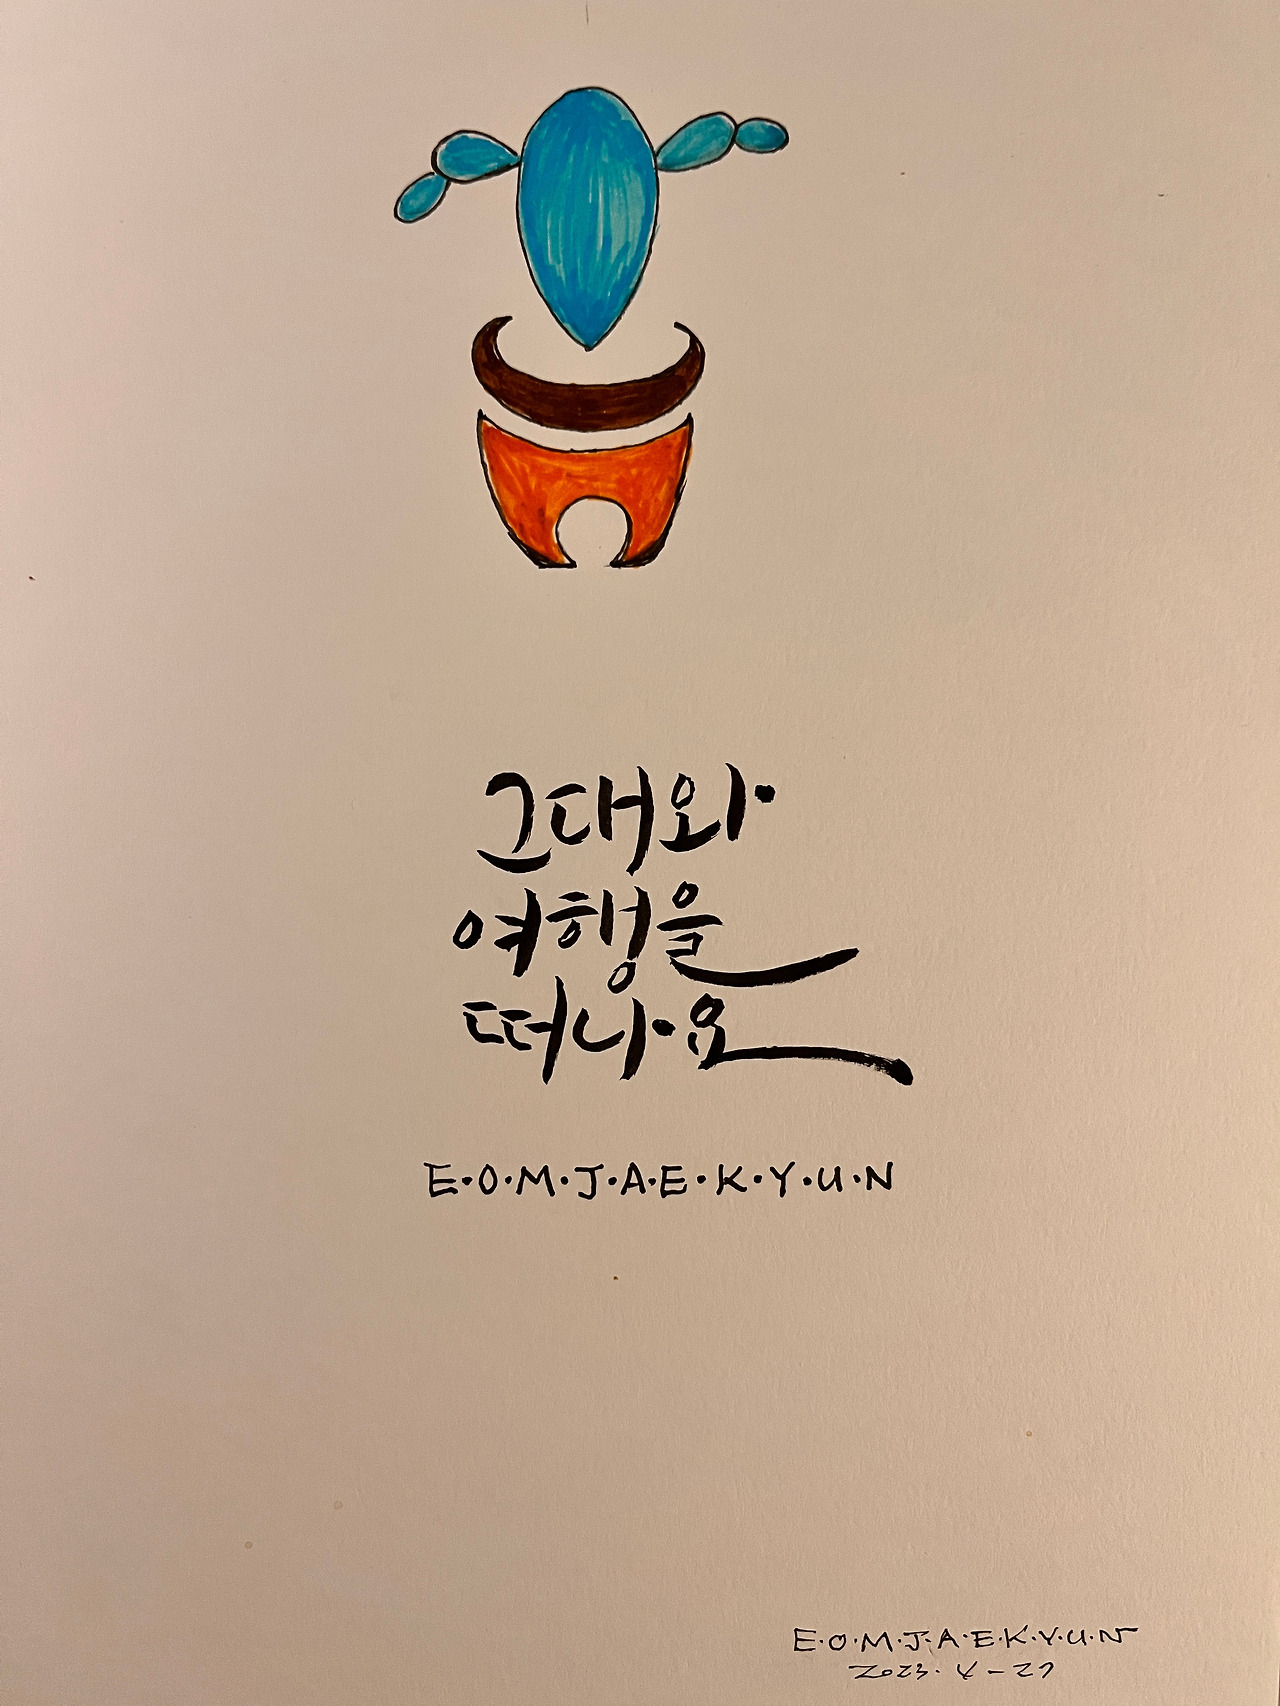 그대와
여행을
떠나요
E·O·M·J·A·E·K·Y·U·N
E·O·M·J·A·E·K·Y·U·N
2023. 4-27